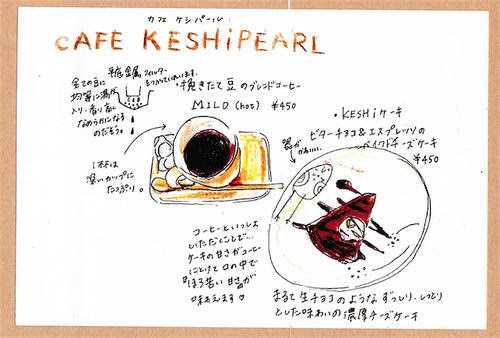 カフェ ケシパール:
CAFE KESHiPEARL
全ての豆に
均等に湯が
入り、香り高く
なめらかになる
のだそう。
平底金属フィルター
をつかっています。
・挽きたて豆のブレンドコーヒー
MILD (hot) ¥450
1杯は
深いカップに
たっぷり。
・KESHiケーキ
ビターチョコ&エスプレッソの
ベイクドチーズケーキ
¥450
器が
かわいい。
コーヒーといっしょに
いただくことで…
ケーキの甘さがコーヒー
にとけて口の中で
『ほろ苦い甘さ』が
味わえます♡
まるで生チョコのような ずっしり、しっとり
とした味わいの濃厚チーズケーキ